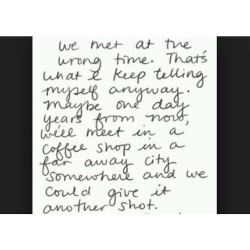 we met at the
wrong time. That's
what I keep telling
myself anyway.
maybe one day
years from now,
we'll meet in a
coffee shop in a
far away city
somewhere and we
could give it
another shot.